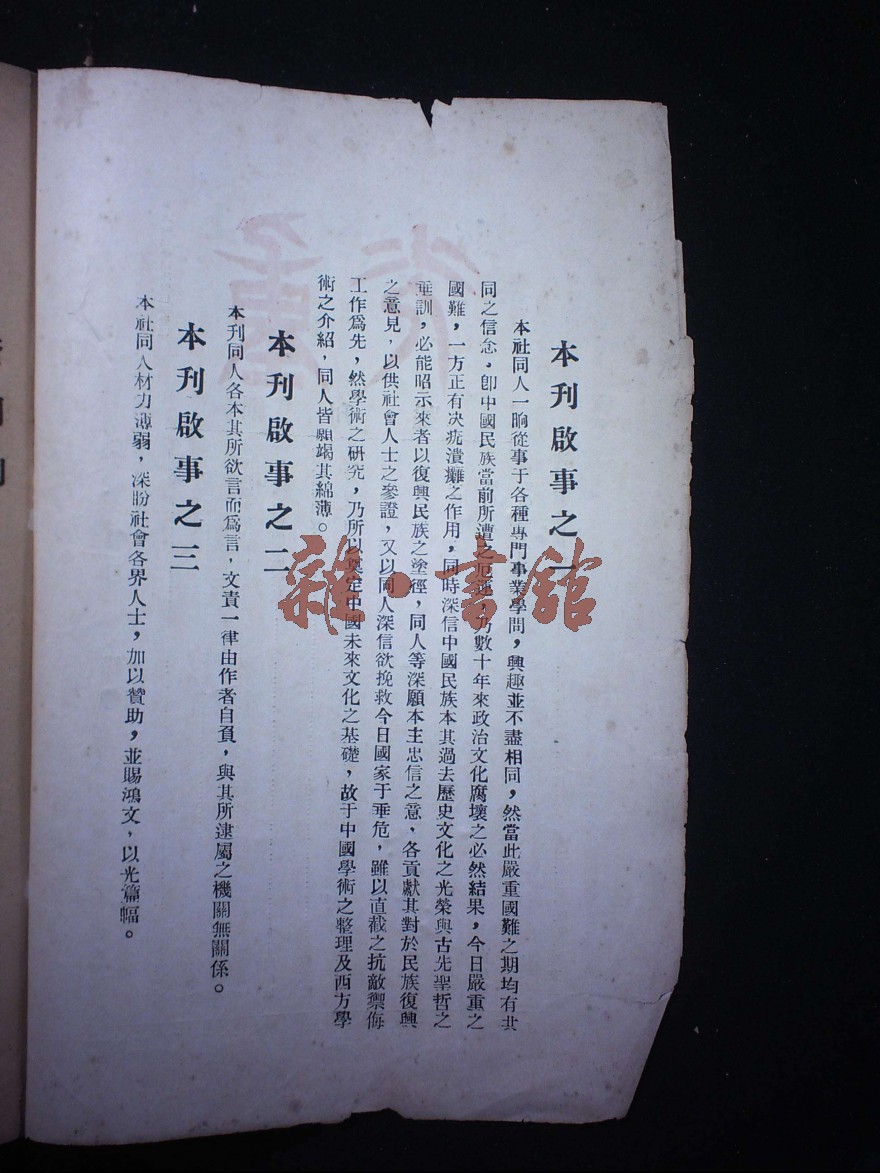 本刊啟事之一
本社同人一晌從事于各種專門事業學問，興趣並不盡相同，然當此嚴重國難之期均有共
同之信念，卽中國民族當前所遭之厄運，乃數十年來政治文化腐壞之必然結果，今日嚴重之
國難，一方正有决疘潰癰之作用，同時深信中國民族本其過去歷史文化之光榮與古先聖哲之
垂訓，必能昭示來者以復興民族之塗徑，同人等深願本主忠信之意，各貢獻其對於民族復興
之意見，以供社會人士之參證，又以同人深信欲挽救今日國家于垂危，雖以直截之抗敵禦侮
工作爲先，然學術之研究，乃所以奠定中國未來文化之基礎，故于中國學術之整理及西方學
術之介紹，同人皆願竭其綿薄。
本刊啟事之二
本刊同人各本其所欲言而爲言，文責一律由作者自負，與其所逮屬之機關無關係。
本刊啟事之三
本社同人材力薄弱，深盼社會各界人士，加以贊助，並賜鴻文，以光篇幅。
雜·書館